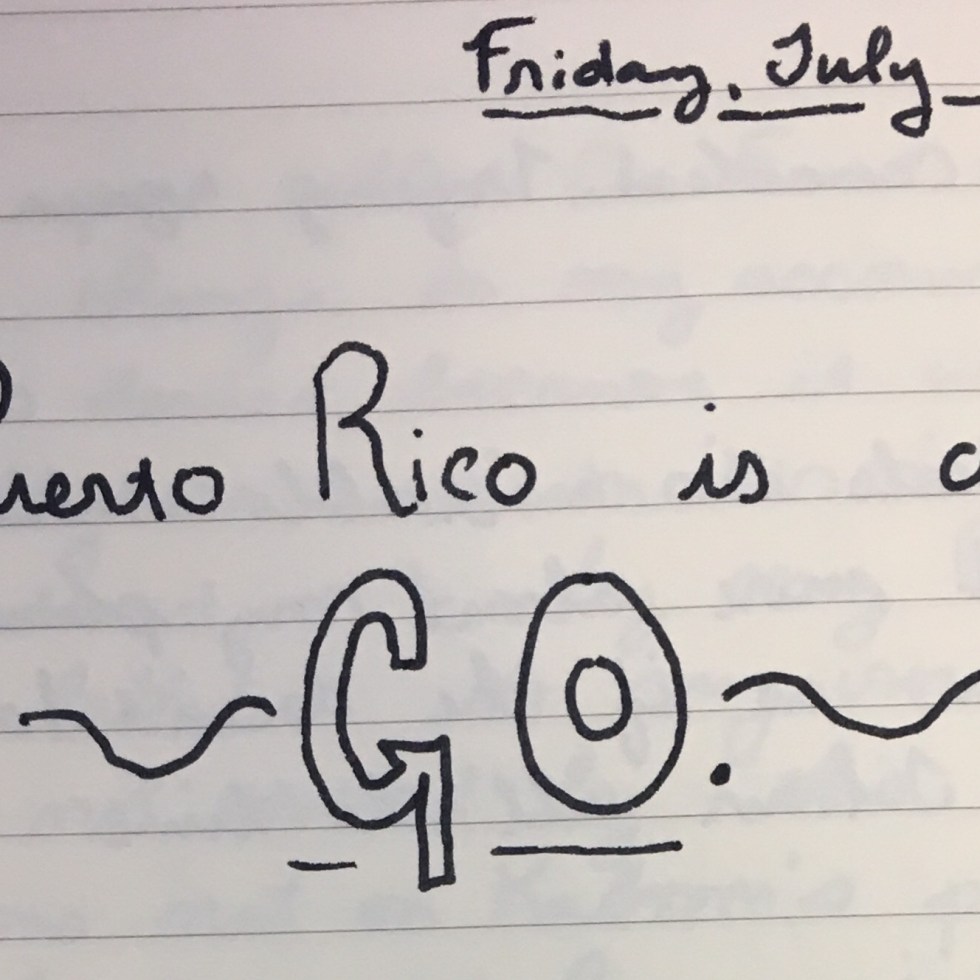 Friday, July
Puerto Rico is a
GO.